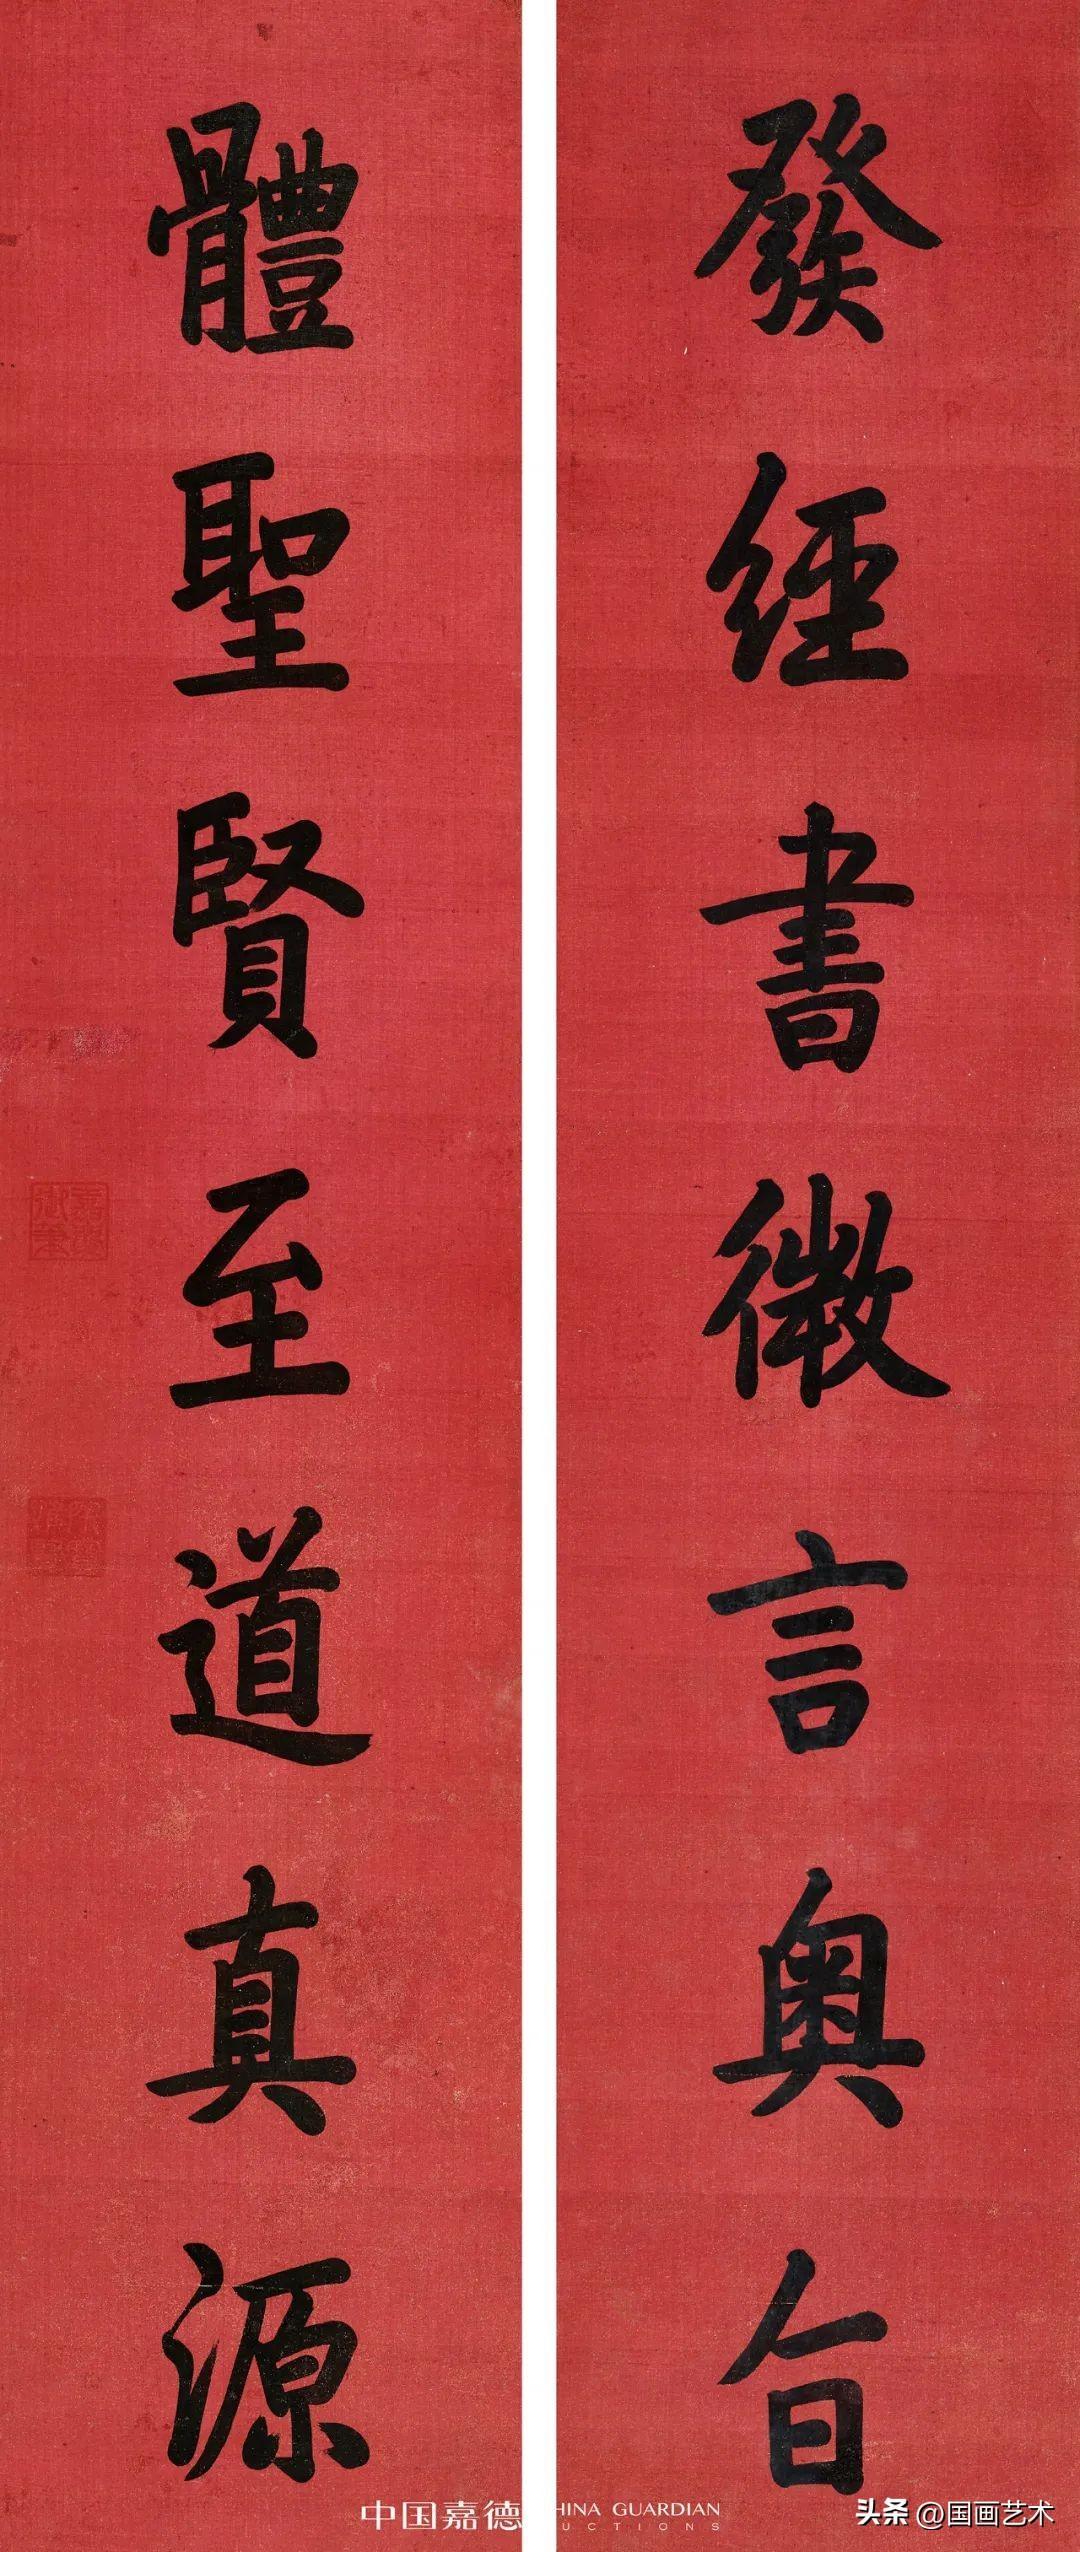 發經書微言奧旨
體聖賢至道真源
中国嘉德 CHINA GUARDIAN
头条 @国画艺术